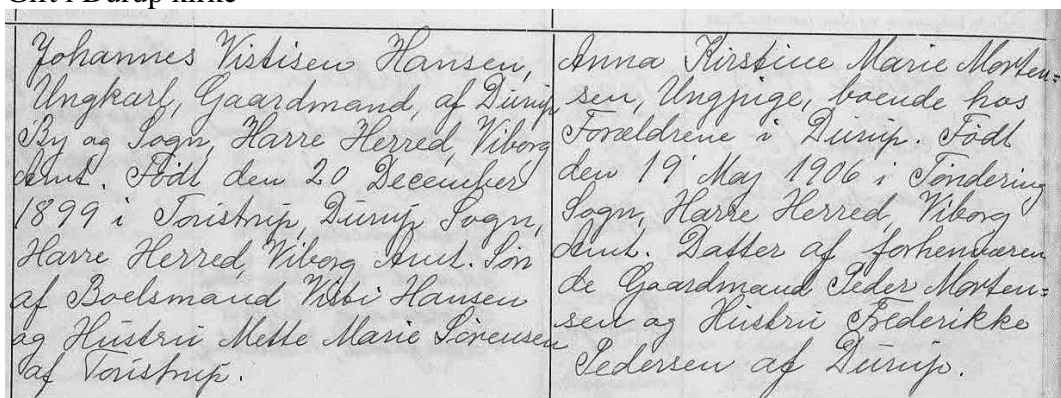 Gift i Durup kirke
Johannes Vistisen Hansen,
Ungkarl, Gaardmand, af Durup
By og Sogn, Harre Herred, Viborg
Amt. Født den 20 December
1899 i Toustrup, Durup Sogn,
Harre Herred, Viborg Amt. Søn
af Boelsmand Visti Hansen
og Hustru Mette Marie Sørensen
af Toustrup.
Anna Kirstine Marie Morten=
sen, Ungpige, boende hos
Forældrene i Durup. Født
den 19' Maj 1906 i Tøndering
Sogn, Harre Herred, Viborg
Amt. Datter af forhenværen
de Gaardmand Peder Morten=
sen og Hustru Frederikke
Pedersen af Durup.